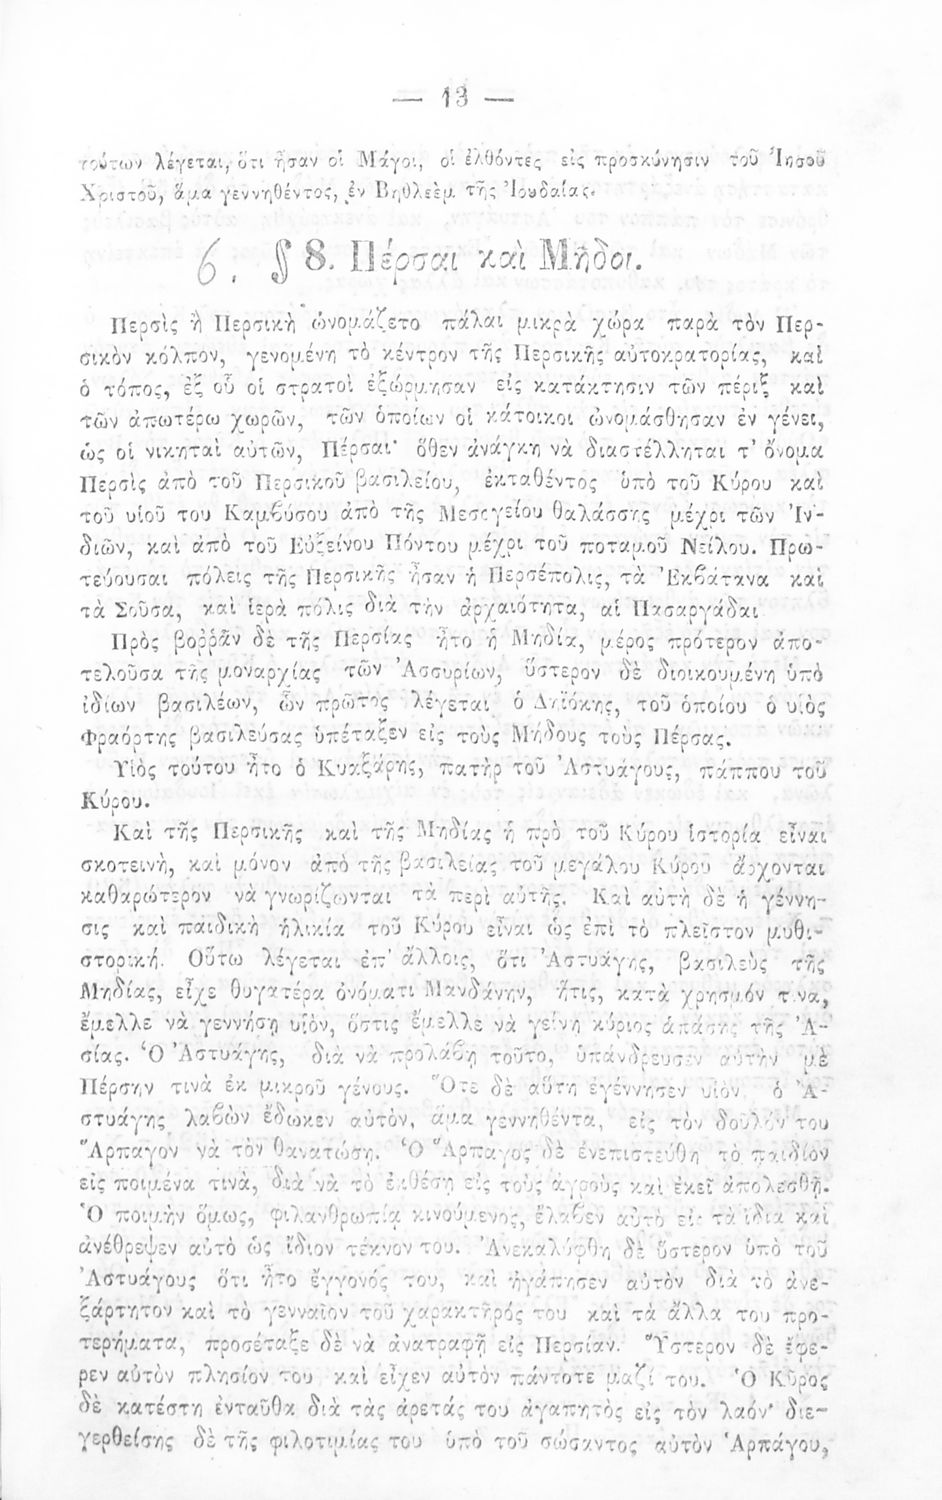 — 13 —
τούτων λέγεται, ὅτι ἦσαν οἱ Μάγοι, οἱ ἐλθόντες εἰς προσκύνησιν τοῦ Ἰησοῦ
Χριστοῦ, ἅμα γεννηθέντος, ἐν Βηθλεὲμ τῆς Ἰουδαίας.
6. § 8. Πέρσαι καὶ Μῆδοι.
Περσὶς ἢ Περσικὴ ὠνομάζετο πάλαι μικρὰ χώρα παρὰ τὸν Περ-
σικὸν κόλπον, γενομένη τὸ κέντρον τῆς Περσικῆς αὐτοκρατορίας, καὶ
ὁ τόπος, ἐξ οὗ οἱ στρατοὶ ἐξώρμησαν εἰς κατάκτησιν τῶν πέριξ καὶ
τῶν ἀπωτέρω χωρῶν, τῶν ὁποίων οἱ κάτοικοι ὠνομάσθησαν ἐν γένει,
ὡς οἱ νικηταὶ αὐτῶν, Πέρσαι· ὅθεν ἀνάγκη νὰ διαστέλληται τ' ὄνομα
Περσὶς ἀπὸ τοῦ Περσικοῦ βασιλείου, ἐκταθέντος ὑπὸ τοῦ Κύρου καὶ
τοῦ υἱοῦ του Καμβύσου ἀπὸ τῆς Μεσογείου θαλάσσης μέχρι τῶν Ἰν-
διῶν, καὶ ἀπὸ τοῦ Εὐξείνου Πόντου μέχρι τοῦ ποταμοῦ Νείλου. Πρω-
τεύουσαι πόλεις τῆς Περσικῆς ἦσαν ἡ Περσέπολις, τὰ Ἐκβάτανα καὶ
τὰ Σοῦσα, καὶ ἱερὰ πόλις διὰ τὴν ἀρχαιότητα, αἱ Πασαργάδαι
Πρὸς βοῤῥᾶν δὲ τῆς Περσίας ἦτο ἡ Μηδία, μέρος πρότερον ἀπο-
τελοῦσα τῆς μοναρχίας τῶν Ἀσσυρίων, ὕστερον δὲ διοικουμένη ὑπὸ
ἰδίων βασιλέων, ὧν πρῶτος λέγεται ὁ Δηϊόκης, τοῦ ὁποίου ὁ υἱὸς
Φραόρτης βασιλεύσας ὑπέταξεν εἰς τοὺς Μήδους τοὺς Πέρσας.
Υἱὸς τούτου ἦτο ὁ Κυαξάρης, πατὴρ τοῦ Ἀστυάγους, πάππου τοῦ
Κύρου.
Καὶ τῆς Περσικῆς καὶ τῆς Μηδίας ἡ πρὸ τοῦ Κύρου ἱστορία εἶναι
σκοτεινὴ, καὶ μόνον ἀπὸ τῆς βασιλείας τοῦ μεγάλου Κύρου ἄρχονται
καθαρώτερον νὰ γνωρίζωνται τὰ περὶ αὐτῆς. Καὶ αὐτὴ δὲ ἡ γέννη-
σις καὶ παιδικὴ ἡλικία τοῦ Κύρου εἶναι ὡς ἐπὶ τὸ πλεῖστον μυθι-
στορική. Οὕτω λέγεται ἐπ' ἄλλοις, ὅτι Ἀστυάγης, βασιλεὺς τῆς
Μηδίας, εἶχε θυγατέρα ὀνόματι Μανδάνην, ἥτις, κατὰ χρησμόν τινα,
ἔμελλε νὰ γεννήσῃ υἱὸν, ὅστις ἔμελλε νὰ γείνῃ κύριος ἁπάσης τῆς Ἀ-
σίας. Ὁ Ἀστυάγης, διὰ νὰ προλάβῃ τοῦτο, ὑπάνδρευσεν αὐτὴν μὲ
Πέρσην τινὰ ἐκ μικροῦ γένους. Ὅτε δὲ αὕτη ἐγέννησεν υἱὸν, ὁ Ἀ-
στυάγης λαβὼν ἔδωκεν αὐτὸν, ἅμα γεννηθέντα, εἰς τὸν δοῦλόν του
Ἅρπαγον νὰ τὸν θανατώσῃ. Ὁ Ἅρπαγος δὲ ἐνεπιστεύθη τὸ παιδίον
εἰς ποιμένα τινὰ, διὰ νὰ τὸ ἐκθέσῃ εἰς τοὺς ἀγροὺς καὶ ἐκεῖ ἀπολεσθῇ.
Ὁ ποιμὴν ὅμως, φιλανθρωπίᾳ κινούμενος, ἔλαβεν αὐτὸ εἰς τὰ ἴδια καὶ
ἀνέθρεψεν αὐτὸ ὡς ἴδιον τέκνον του. Ἀνεκαλύφθη δὲ ὕστερον ὑπὸ τοῦ
Ἀστυάγους ὅτι ἦτο ἔγγονός του, καὶ ἠγάπησεν αὐτὸν διὰ τὸ ἀνε-
ξάρτητον καὶ τὸ γενναῖον τοῦ χαρακτῆρός του καὶ τὰ ἄλλα του προ-
τερήματα, προσέταξε δὲ νὰ ἀνατραφῇ εἰς Περσίαν. Ὕστερον δὲ ἔφε-
ρεν αὐτὸν πλησίον του καὶ εἶχεν αὐτὸν πάντοτε μαζί του. Ὁ Κῦρος
δὲ κατέστη ἐνταῦθα διὰ τὰς ἀρετάς του ἀγαπητὸς εἰς τὸν λαόν· διε-
γερθείσης δὲ τῆς φιλοτιμίας του ὑπὸ τοῦ σώσαντος αὐτὸν Ἁρπάγου,